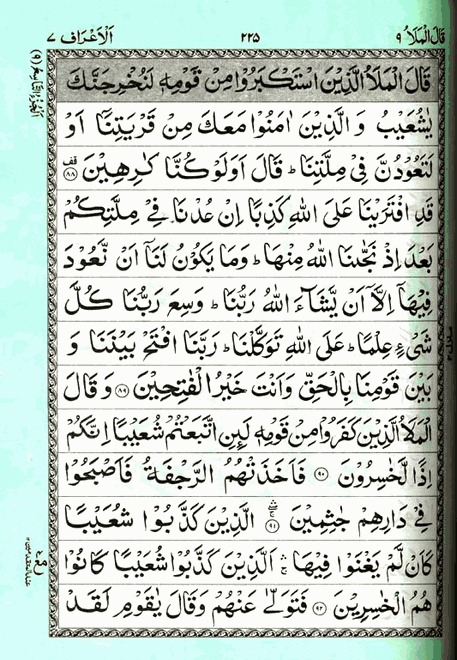 قَالَ الْمَلَأُ ٩
٢٢٥
اَلْاَعْرَاف ٧
قَالَ الْمَلَاُ الَّذِيْنَ اسْتَكْبَرُوْا مِنْ قَوْمِهٖ لَنُخْرِجَنَّكَ
يٰشُعَيْبُ وَ الَّذِيْنَ اٰمَنُوْا مَعَكَ مِنْ قَرْيَتِنَآ اَوْ
لَتَعُوْدُنَّ فِيْ مِلَّتِنَا ؕ قَالَ اَوَلَوْ كُنَّا كٰرِهِيْنَ ﴿٨٨﴾ قف
قَدِ افْتَرَيْنَا عَلَى اللّٰهِ كَذِبًا اِنْ عُدْنَا فِيْ مِلَّتِكُمْ
بَعْدَ اِذْ نَجّٰىنَا اللّٰهُ مِنْهَا ؕ وَمَا يَكُوْنُ لَنَآ اَنْ نَّعُوْدَ
فِيْهَآ اِلَّآ اَنْ يَّشَآءَ اللّٰهُ رَبُّنَا ؕ وَسِعَ رَبُّنَا كُلَّ
شَيْءٍ عِلْمًا ؕ عَلَى اللّٰهِ تَوَكَّلْنَا ؕ رَبَّنَا افْتَحْ بَيْنَنَا وَ
بَيْنَ قَوْمِنَا بِالْحَقِّ وَاَنْتَ خَيْرُ الْفٰتِحِيْنَ ﴿٨٩﴾ وَ قَالَ
الْمَلَاُ الَّذِيْنَ كَفَرُوْا مِنْ قَوْمِهٖ لَىِٕنِ اتَّبَعْتُمْ شُعَيْبًا اِنَّكُمْ
اِذًا لَّخٰسِرُوْنَ ﴿٩٠﴾ فَاَخَذَتْهُمُ الرَّجْفَةُ فَاَصْبَحُوْا
فِيْ دَارِهِمْ جٰثِمِيْنَ ﴿٩١﴾ الَّذِيْنَ كَذَّبُوْا شُعَيْبًا
كَاَنْ لَّمْ يَغْنَوْا فِيْهَا ۛ اَلَّذِيْنَ كَذَّبُوْا شُعَيْبًا كَانُوْا
هُمُ الْخٰسِرِيْنَ ﴿٩٢﴾ فَتَوَلّٰى عَنْهُمْ وَقَالَ يٰقَوْمِ لَقَدْ
اَلْجُزْءُ التَّاسِعُ (٩)